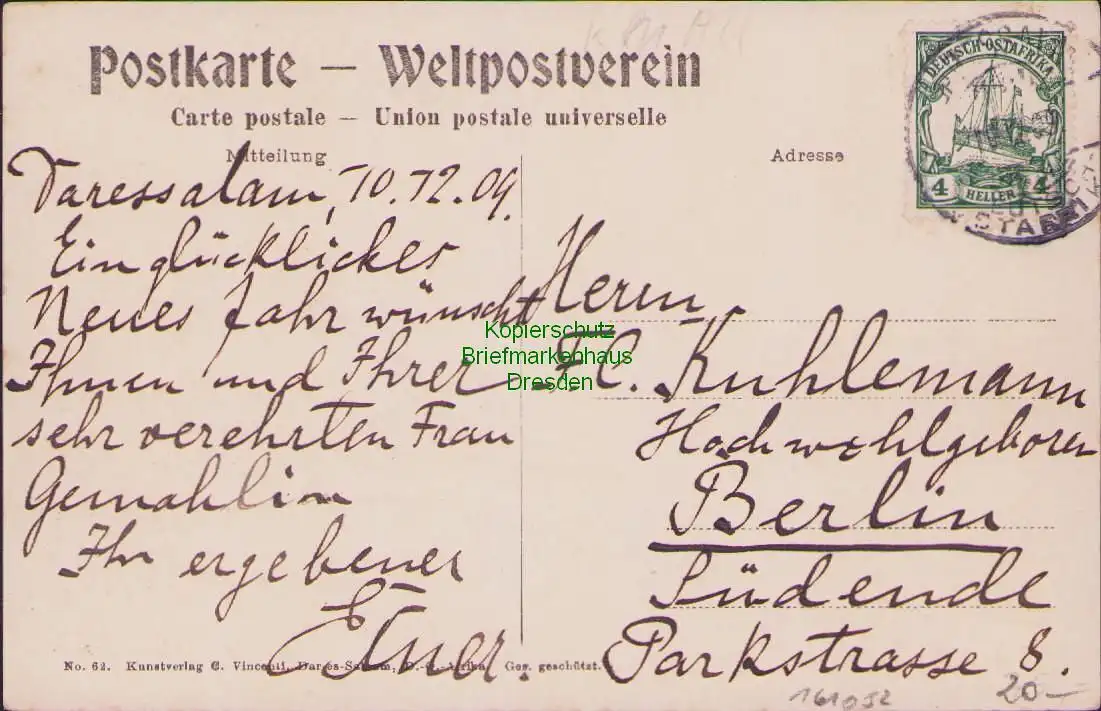 Postkarte — Weltpostverein
Carte postale — Union postale universelle
Mitteilung
Adresse
DEUTSCH-OSTAFRIKA
4 HELLER 4
Daressalam, 10.12.09.
Ein glückliches
Neues Jahr wünscht
Ihnen und Ihrer
sehr verehrten Frau
Gemahlin
Ihr ergebener
Herrn
F. C. Kuhlemann
Hochwohlgeboren
Berlin
Südende
Parkstrasse 8.
Kopierschutz
Briefmarkenhaus
Dresden
No. 62. Kunstverlag C. Vincenti, Dar-es-Salaam, D.-O.-Afrika. Ges. geschützt.
161052
20—